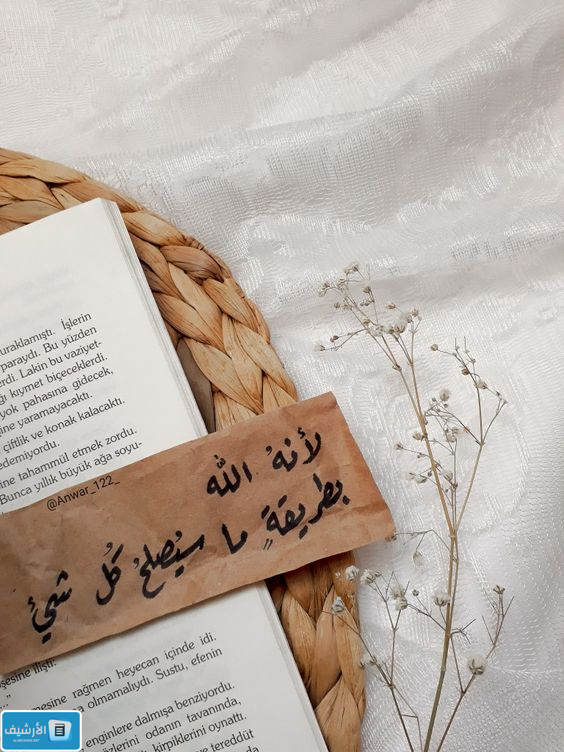 uraklamıştı. İşlerin
paraydı. Bu yüzden
erdi. Lakin bu vaziyet-
ğı kıymet biçeceklerdi.
yok pahasına gidecek,
ine yaramayacaktı.
çiftlik ve konak kalacaktı.
ine tahammül etmek zordu.
edemiyordu.
Bunca yıllık büyük ağa soyu-
@Anwar_122_
لأنهُ الله
بطريقةٍ ما سيُصلحُ كُل شيئ
şesine ilişti.
mesine rağmen heyecan içinde idi.
a olmamalıydı. Sustu, efenin
enginlere dalmışa benziyordu.
özlerini odanın tavanında,
kirpiklerini oynattı.
ve tereddüt
الأرشيف